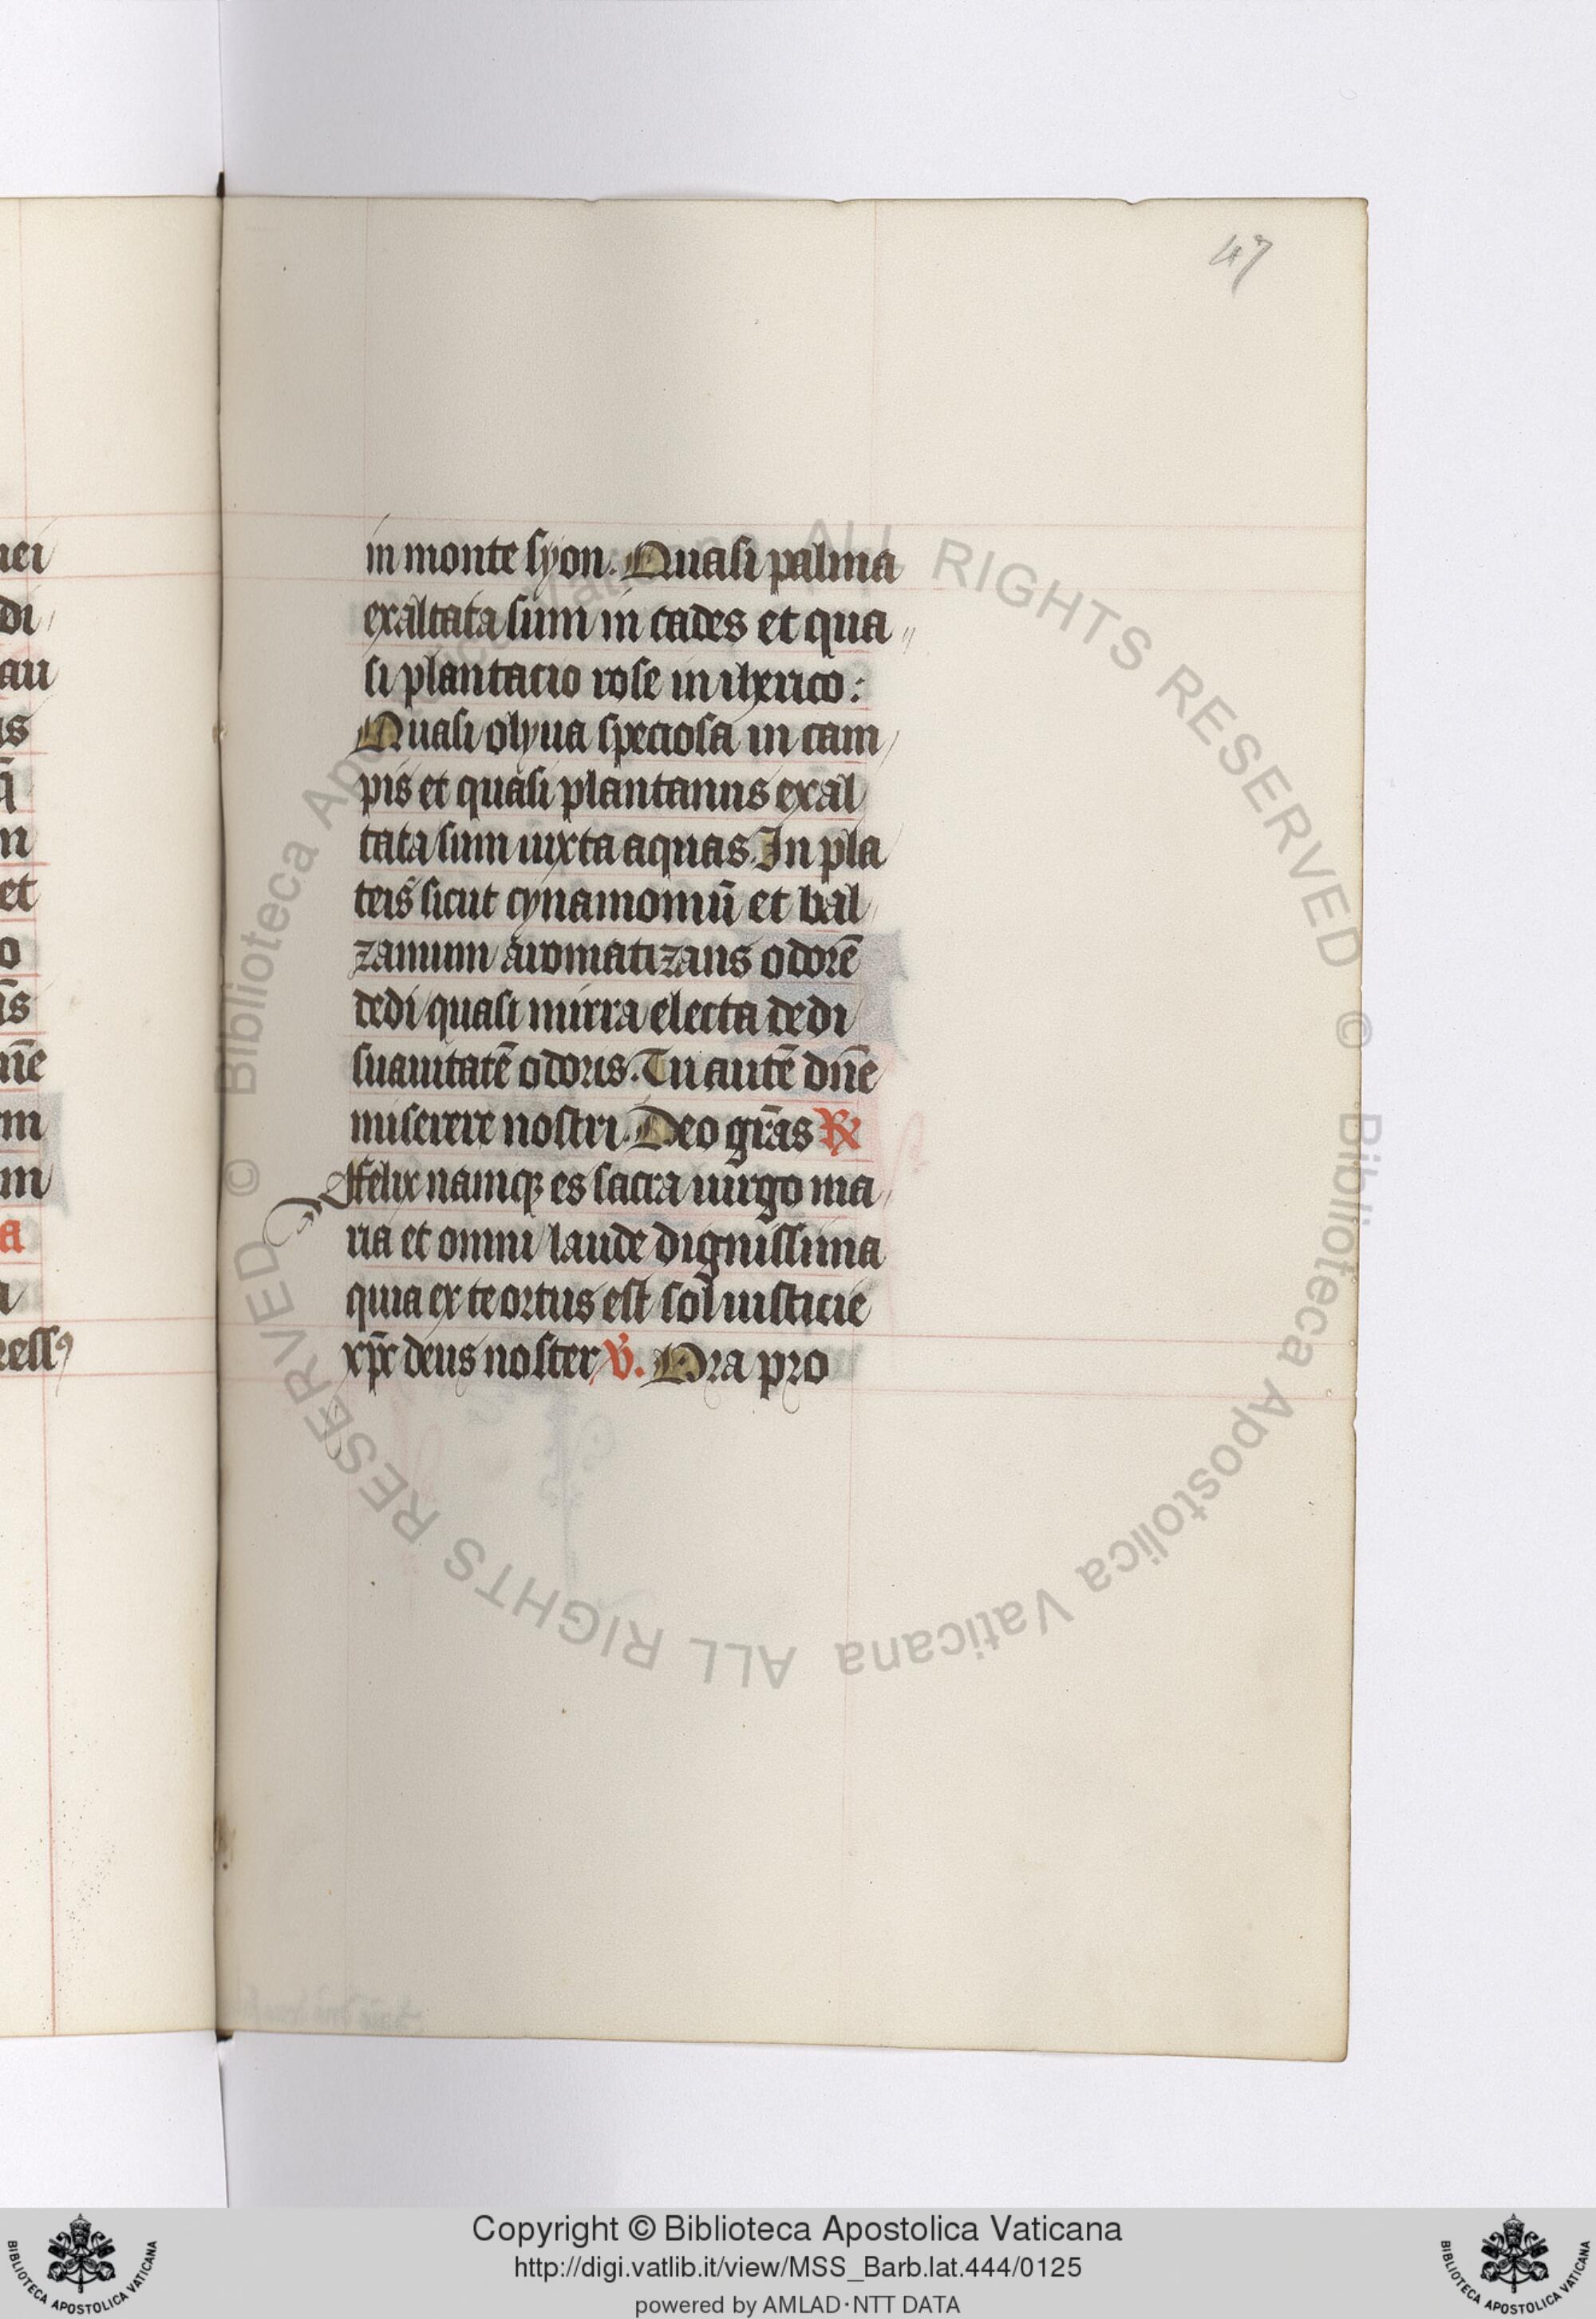 47
in monte syon. Quasi palma
exaltata sum in cades et qua
si plantacio rose in iherico:
Quasi olyua speciosa in cam
pis et quasi plantanus exal
tata sum iuxta aquas. In pla
teis sicut cynamomū et bal
zamum aromatizans odorē
dedi quasi mirra electa dedi
suauitatē odoris. Tu autē dn̄e
miserere nostri. Deo gr̄as ℟
Ffelix namqꝫ es sacra uirgo ma
ria et omni laude dignissima
quia ex te ortus est sol iusticie
xp̄c deus noster ℣. Ora pro
nei
di
au
us
m
et
o
n̄e
m
m
a
a
ress⁹
© Biblioteca Apostolica Vaticana ALL RIGHTS RESERVED © Biblioteca Apostolica Vaticana ALL RIGHTS RESERVED
Copyright © Biblioteca Apostolica Vaticana
http://digi.vatlib.it/view/MSS_Barb.lat.444/0125
powered by AMLAD·NTT DATA
BIBLIOTECA APOSTOLICA VATICANA
BIBLIOTECA APOSTOLICA VATICANA